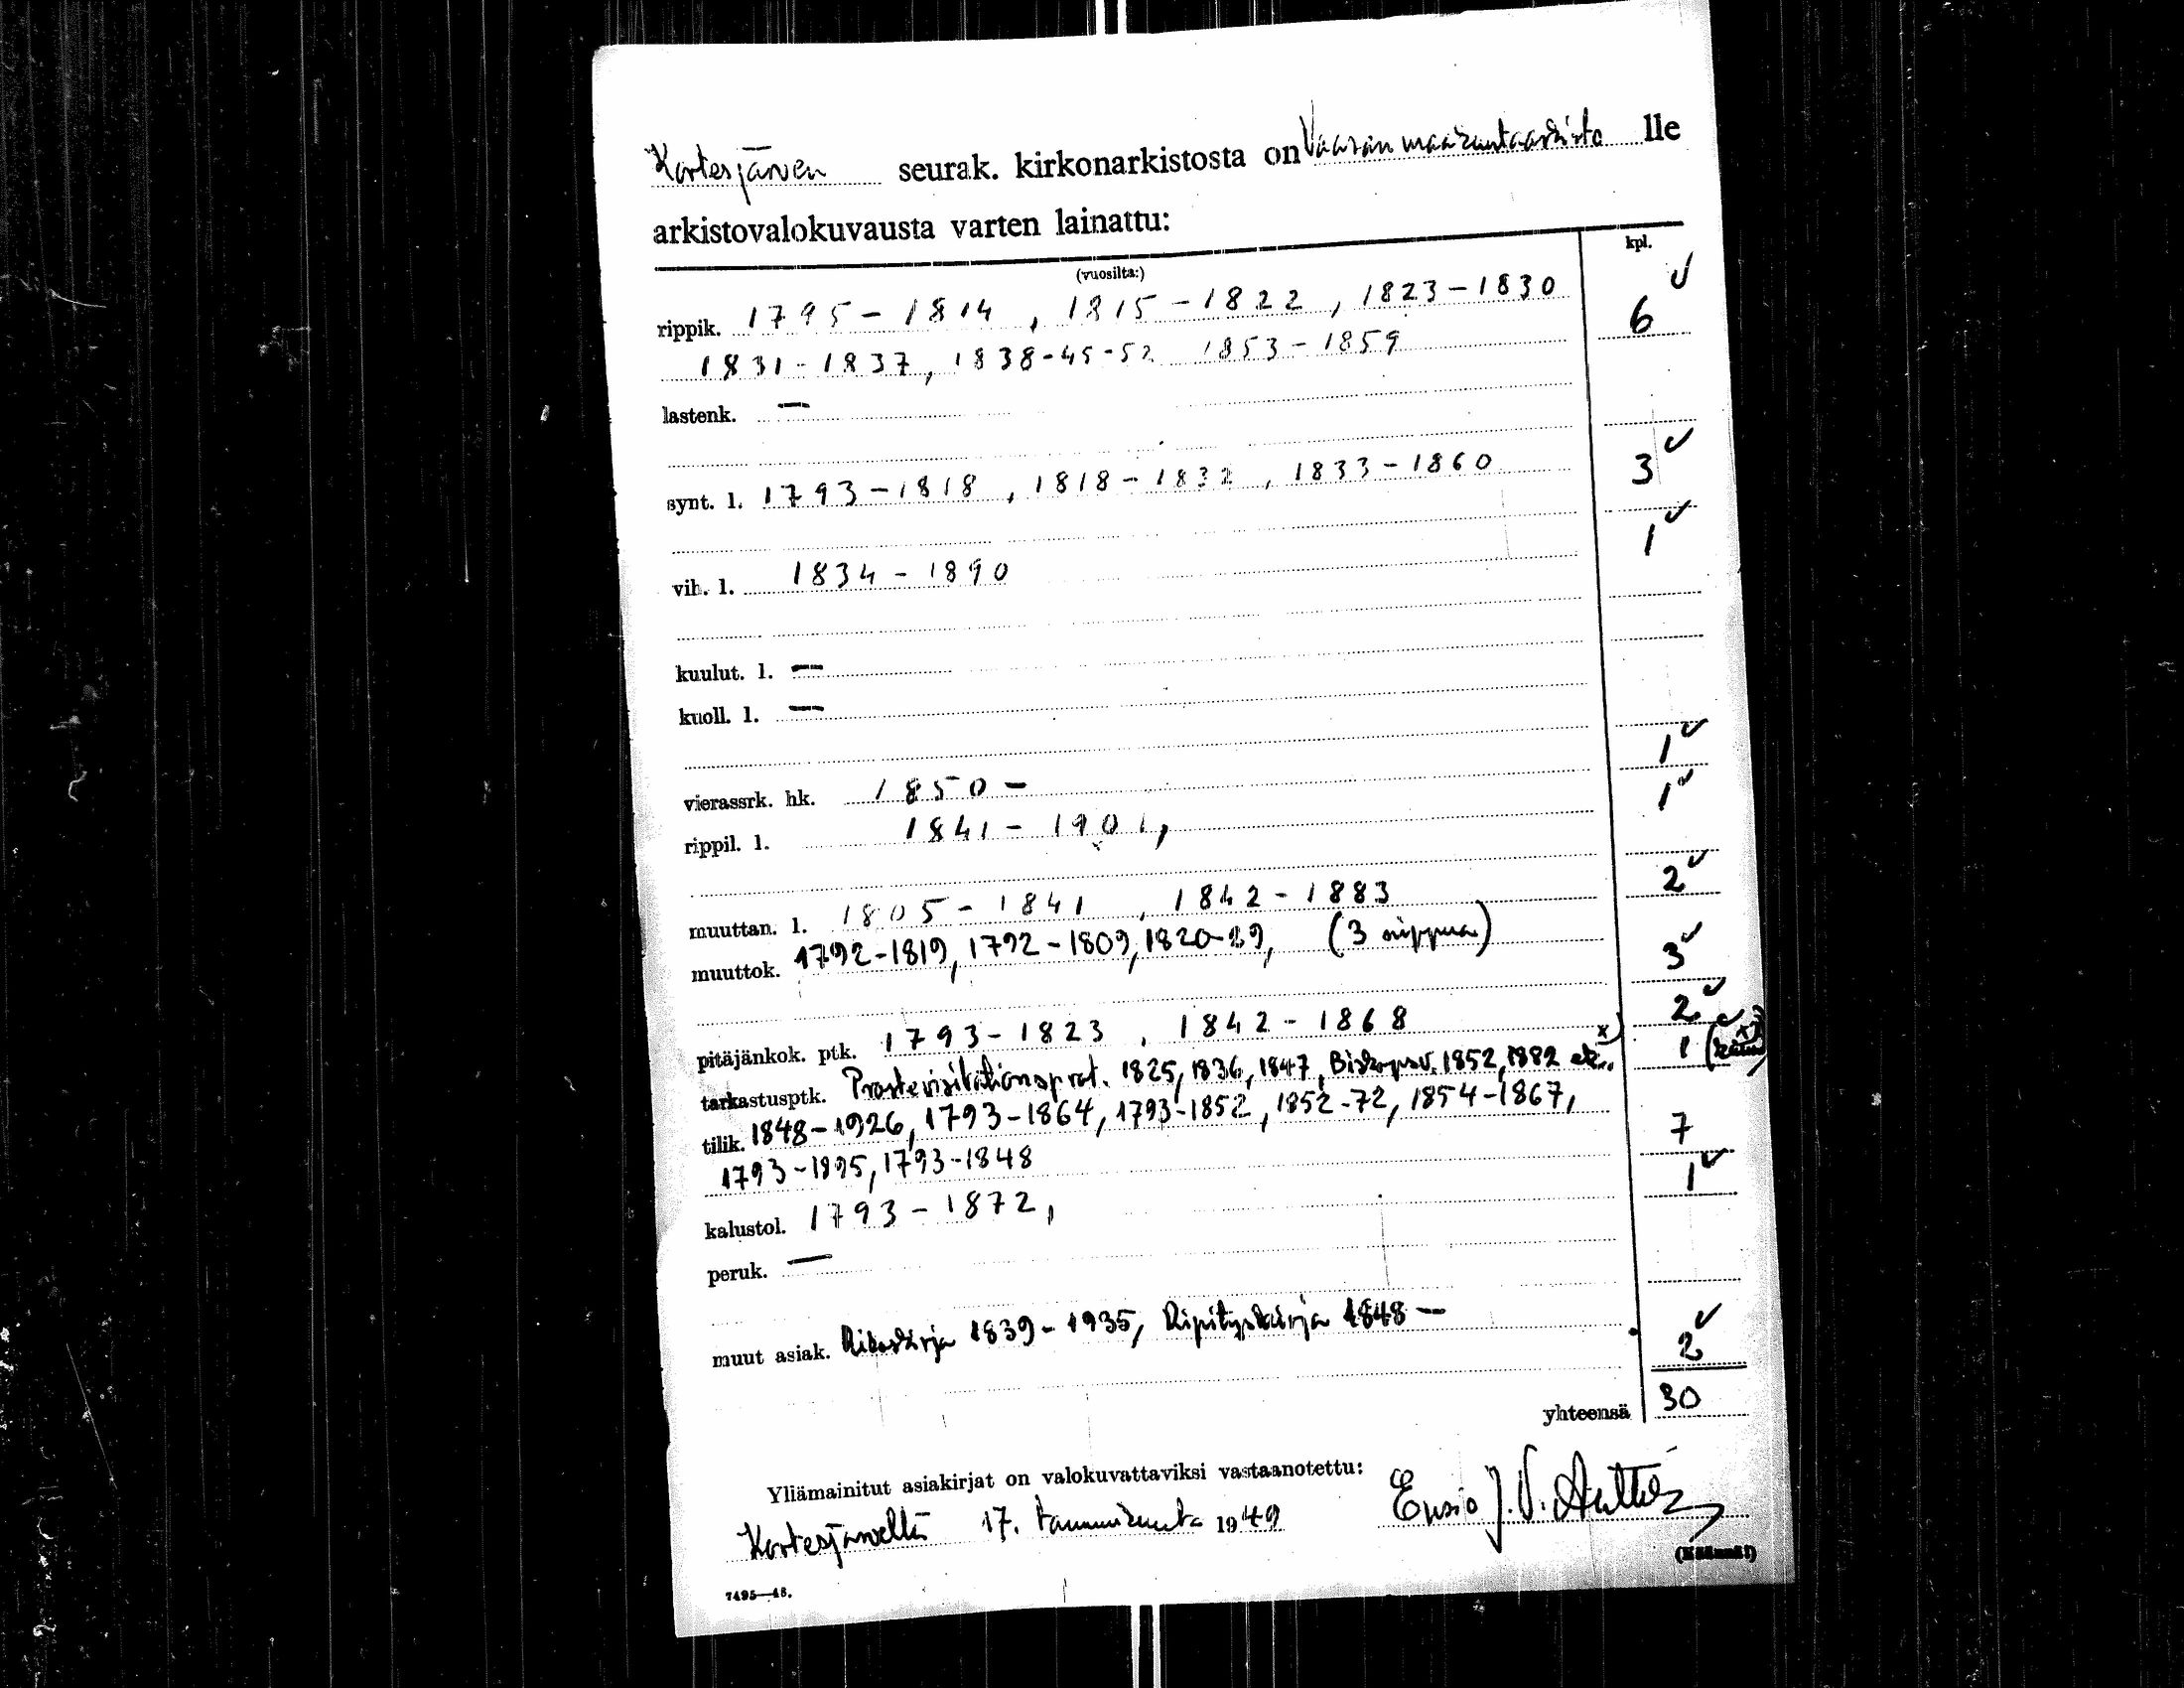 Kortesjärven seurak. kirkonarkistosta on Vaasan maakuntaarkisto lle
arkistovalokuvausta varten lainattu:
(vuosilta:) kpl.
rippik. 1795-1814, 1815-1822, 1823-1830 6 ✓
1831-1837, 1838-45-52 1853-1859
lastenk. —
synt. l. 1793-1818, 1818-1832, 1833-1860 3 ✓
vih. l. 1834-1890 1 ✓
kuulut. l. —
kuoll. l. —
vierassrk. hk. 1850- 1 ✓
rippil. l. 1841-1901, 1 ✓
muuttan. l. 1805-1841, 1842-1883 2 ✓
muuttok. 1792-1819, 1792-1809, 1820-29, (3 nippua) 3 ✓
pitäjänkok. ptk. 1793-1823, 1842-1868 2 ✓
tarkastusptk. Prostevisitationsprot. 1825, 1836, 1847, Biskopsv. 1852, 1882 etc. x) 1
tilik. 1848-1926, 1793-1864, 1793-1852, 1852-72, 1854-1867, 7
1793-1895, 1793-1848
kalustol. 1793-1872, 1 ✓
peruk. —
muut asiak. Rikoskirja 1839-1935, Ripityskirja 1848- 2 ✓
yhteensä 30
Yliämainitut asiakirjat on valokuvattaviksi vastaanotettu:
Kortesjärvellä 17. tammikuuta 1949 Ensio J. V.
(Käännä!)
7495—48.